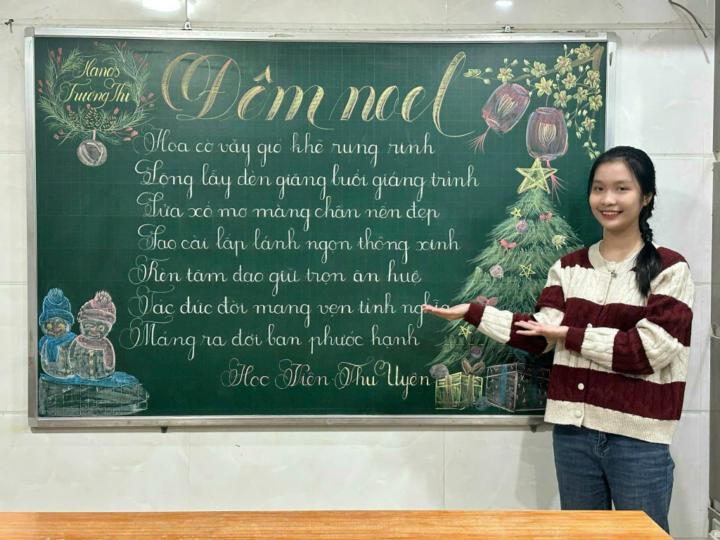 Nanos
Trường Thi
Đêm noel
Hoa cỏ vẫy gió khẽ rung rinh
Lộng lẫy đèn giăng buổi giáng trinh
Lửa xổ mơ màng chân nến đẹp
Sao cài lấp lánh ngọn thông xinh
Rèn tâm đạo giữ tròn ân huệ
Tác đức đời mang vẹn tình nghĩa
Máng ra đời ban phước hạnh
Học Viên Thu Uyên